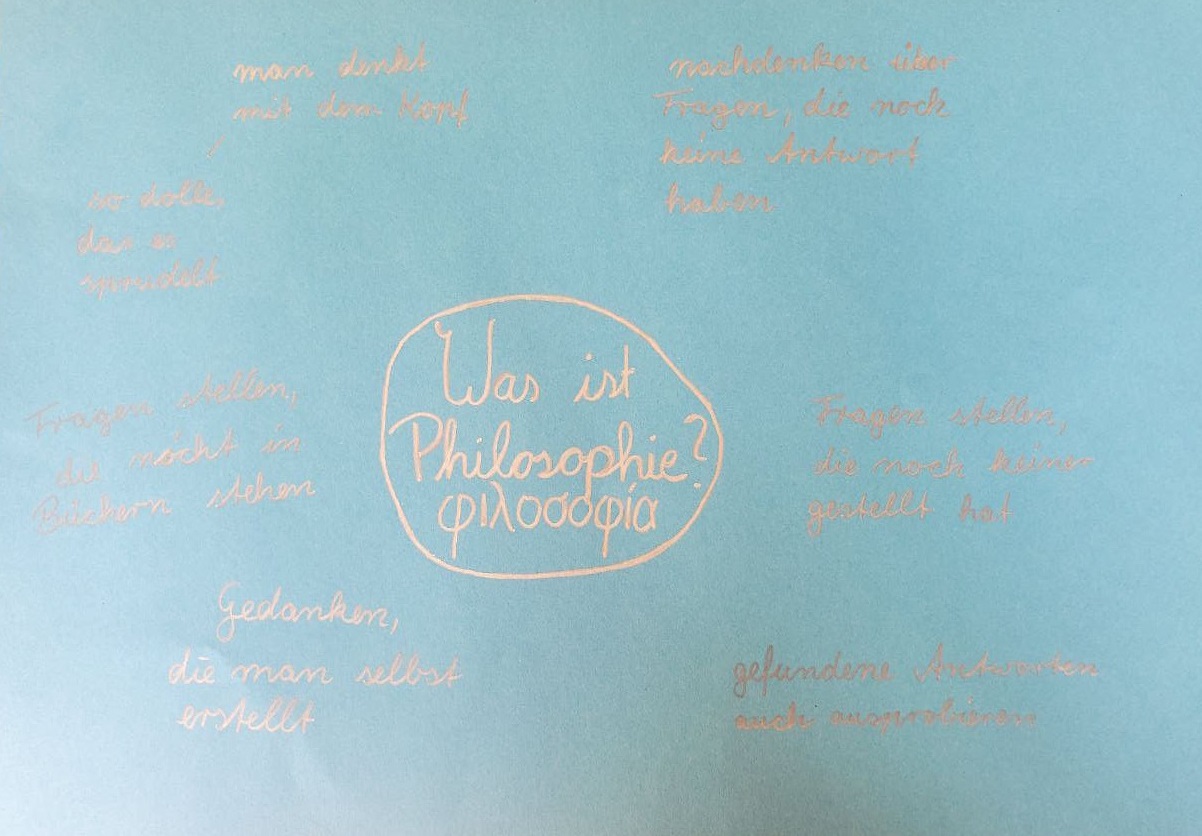 man denkt
mit dem Kopf
so dolle,
das es
sprudelt
nachdenken über
Fragen, die noch
keine Antwort
haben
Was ist
Philosophie?
φιλοσοφία
Fragen stellen,
die nicht in
Büchern stehen
Fragen stellen,
die noch keiner
gestellt hat
Gedanken,
die man selbst
erstellt
gefundene Antworten
auch ausprobieren